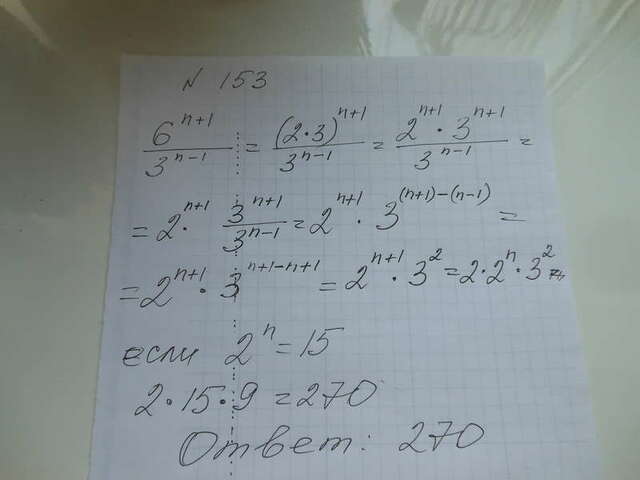 N 153
6^{n+1}/3^{n-1} = (2·3)^{n+1}/3^{n-1} = 2^{n+1}·3^{n+1}/3^{n-1} =
= 2^{n+1}· 3^{n+1}/3^{n-1} = 2^{n+1} · 3^{(n+1)-(n-1)} =
= 2^{n+1} · 3^{n+1-n+1} = 2^{n+1} · 3^2 = 2·2^n·3^2
если 2^n = 15
2·15·9 = 270
Ответ: 270